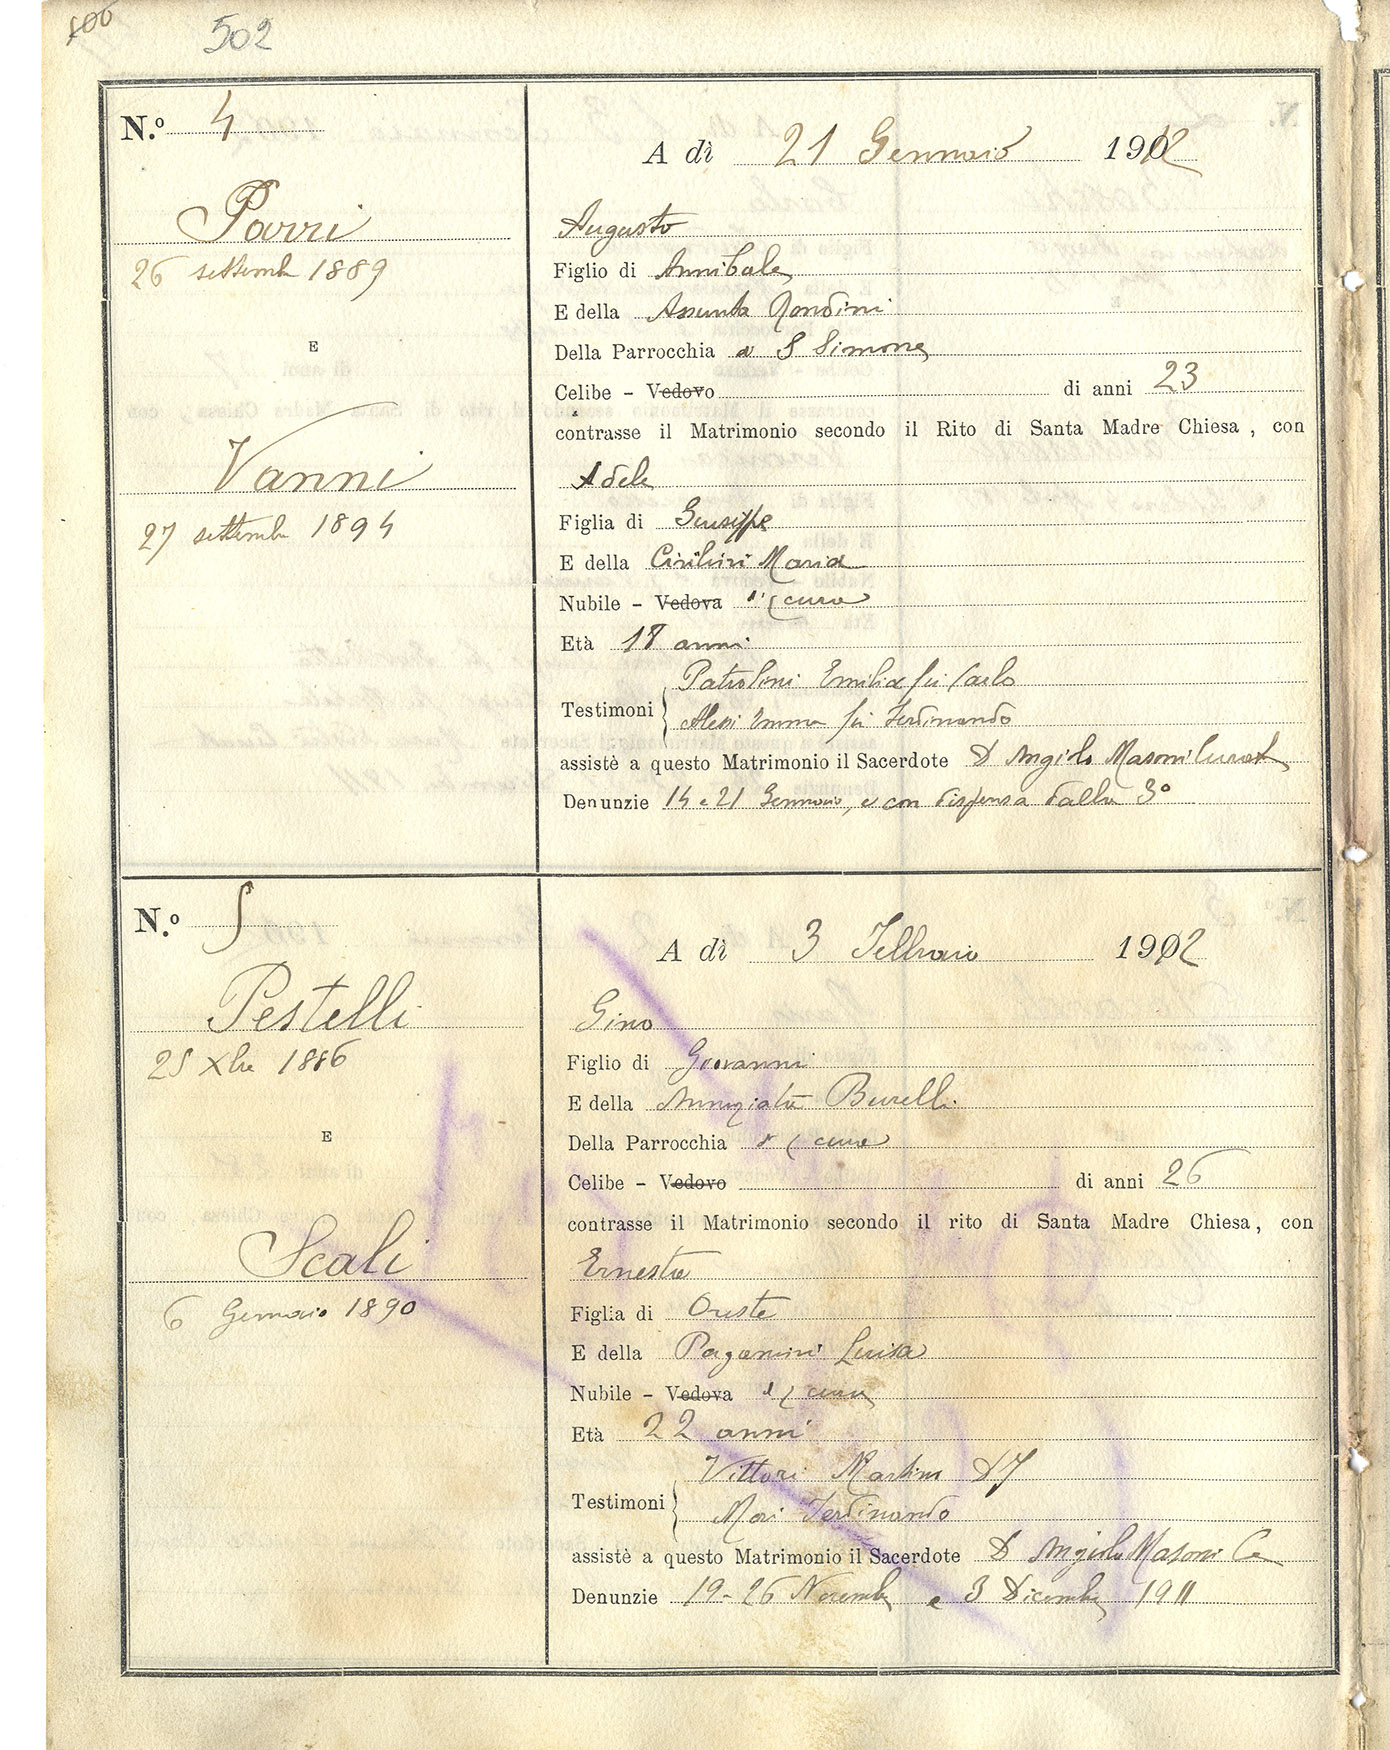 502
N.º 4
A dì 21 Gennaio 1912
Parri
26 settembre 1889
E
Vanni
27 settembre 1894
Augusto
Figlio di Annibale
E della Assunta Rondini
Della Parrocchia a S Simone
Celibe - Vedovo di anni 23
contrasse il Matrimonio secondo il Rito di Santa Madre Chiesa, con
Adele
Figlia di Giuseppe
E della Maria
Nubile - Vedova cura
Età 18 anni
Testimoni Patrolini Emilia fu Carlo
Alessi Emma fu Ferdinando
assistè a questo Matrimonio il Sacerdote D Angiolo Masoni Curato
Denunzie 14 e 21 Gennaio, e con dispensa dalla 3º
N.º 5
A dì 3 Febbraio 1912
Pestelli
25 Xbre 1886
E
Scali
6 Gennaio 1890
Gino
Figlio di Giovanni
E della Annunziata Burelli
Della Parrocchia cura
Celibe - Vedovo di anni 26
contrasse il Matrimonio secondo il rito di Santa Madre Chiesa, con
Ernesta
Figlia di Oreste
E della Paganini Luisa
Nubile - Vedova cura
Età 22 anni
Testimoni Vittori Martino
Mori Ferdinando
assistè a questo Matrimonio il Sacerdote D Angiolo Masoni
Denunzie 19-26 Novembre e 3 Dicembre 1911